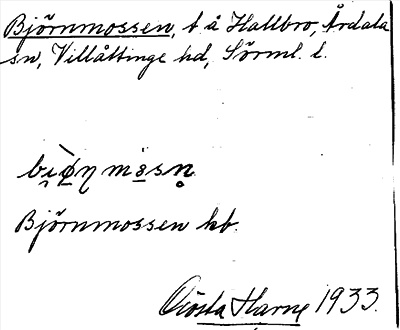 Björnmossen, t å Hallbro, Årdala
sn, Villåttinge hd, Sörml. l.
Björnmossen kb.
Gösta Harne 1933.